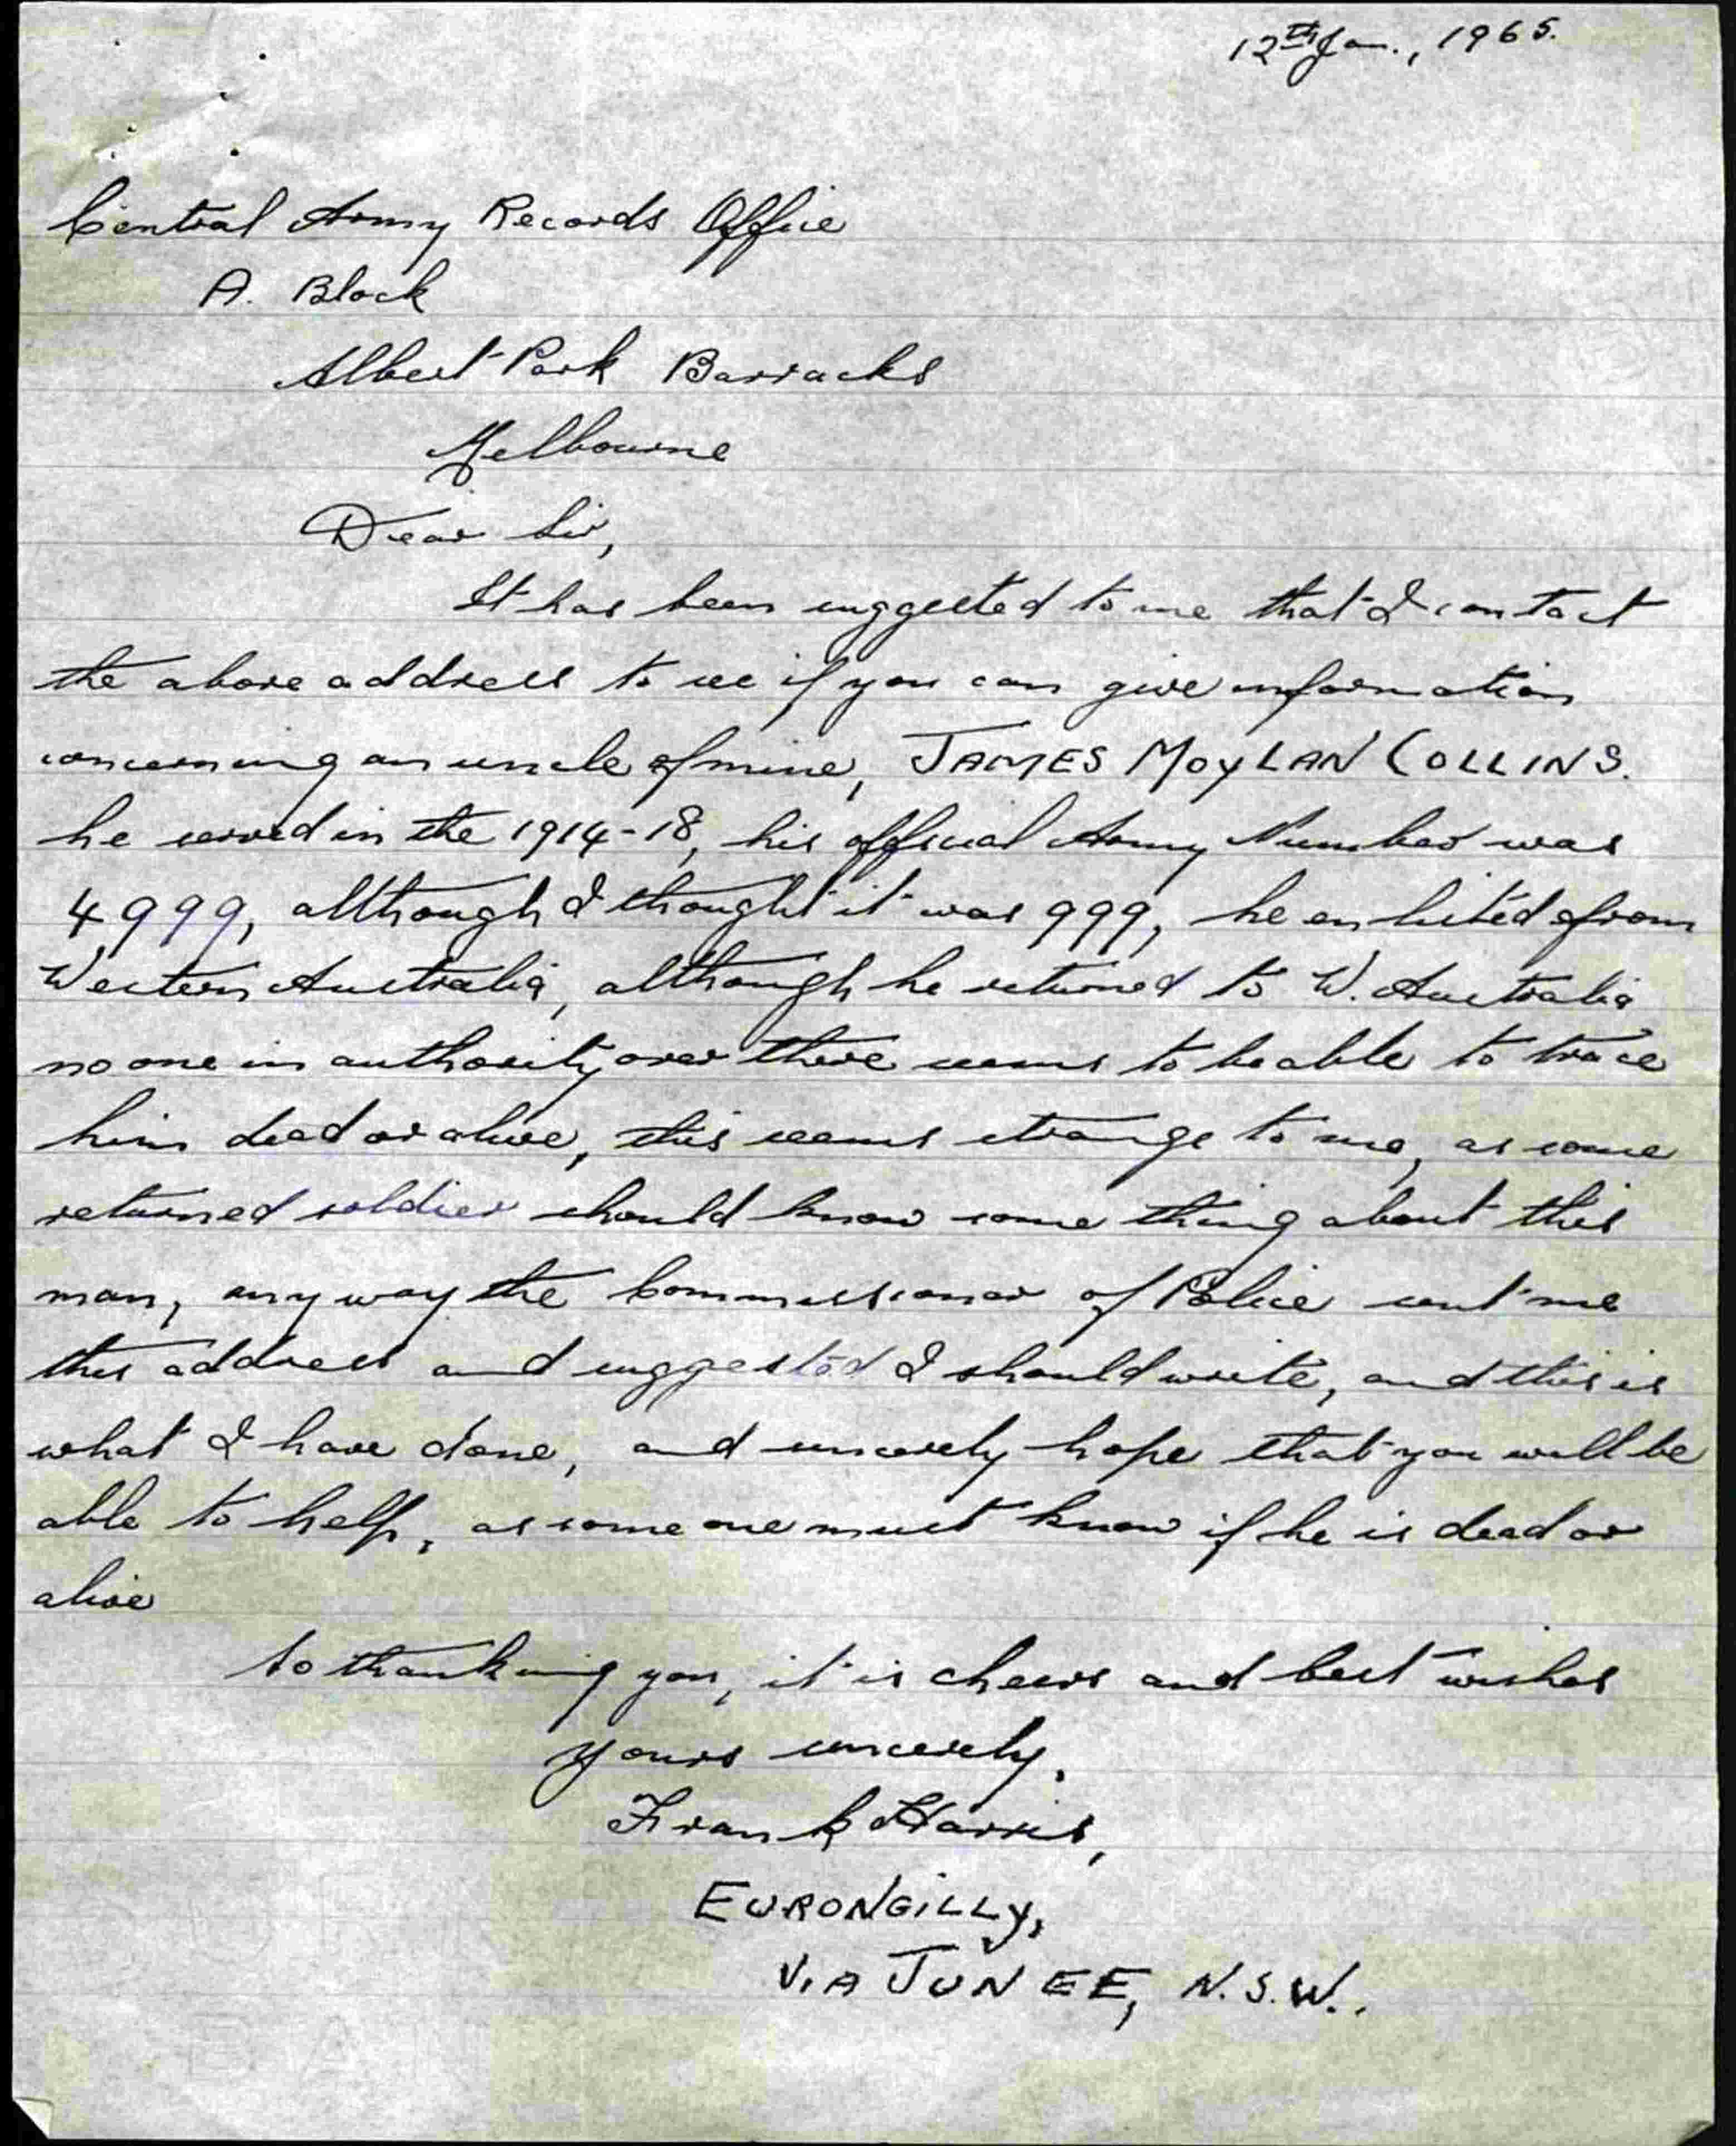 12th Jan., 1965.
Central Army Records Office
A. Block
Albert Park Barracks
Melbourne
Dear Sir,
It has been suggested to me that I contact
the above address to see if you can give information
concerning an uncle of mine, JAMES MOYLAN COLLINS.
he served in the 1914-18, his official Army Number was
4999, although I thought it was 999, he enlisted from
Western Australia, although he returned to W. Australia
no one in authority over there seems to be able to trace
him dead or alive, this seems strange to me, as some
returned soldier should know some thing about this
man, any way the Commissioner of Police sent me
this address and suggested I should write, and this is
what I have done, and sincerely hope that you will be
able to help, as some one must know if he is dead or
alive
So thanking you, it is cheers and best wishes
Yours sincerely,
Frank Harris,
EURONGILLY,
VIA JUNEE, N.S.W..